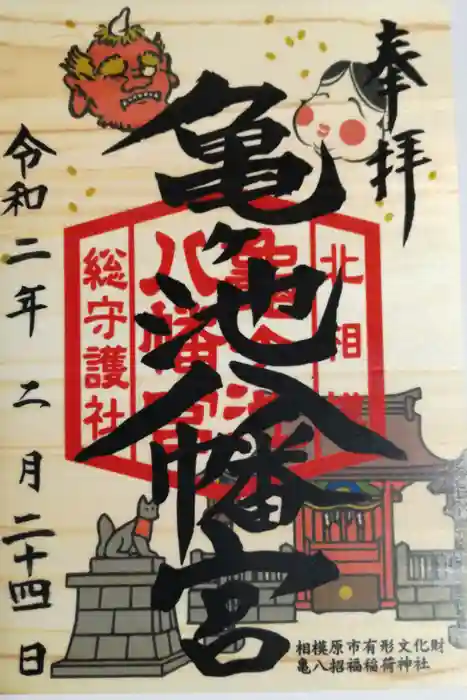 奉拝
亀ヶ池八幡宮
北相模
亀ヶ池
八幡宮
総守護社
令和二年 二月二十四日
相模原市有形文化財
亀八招福稲荷神社